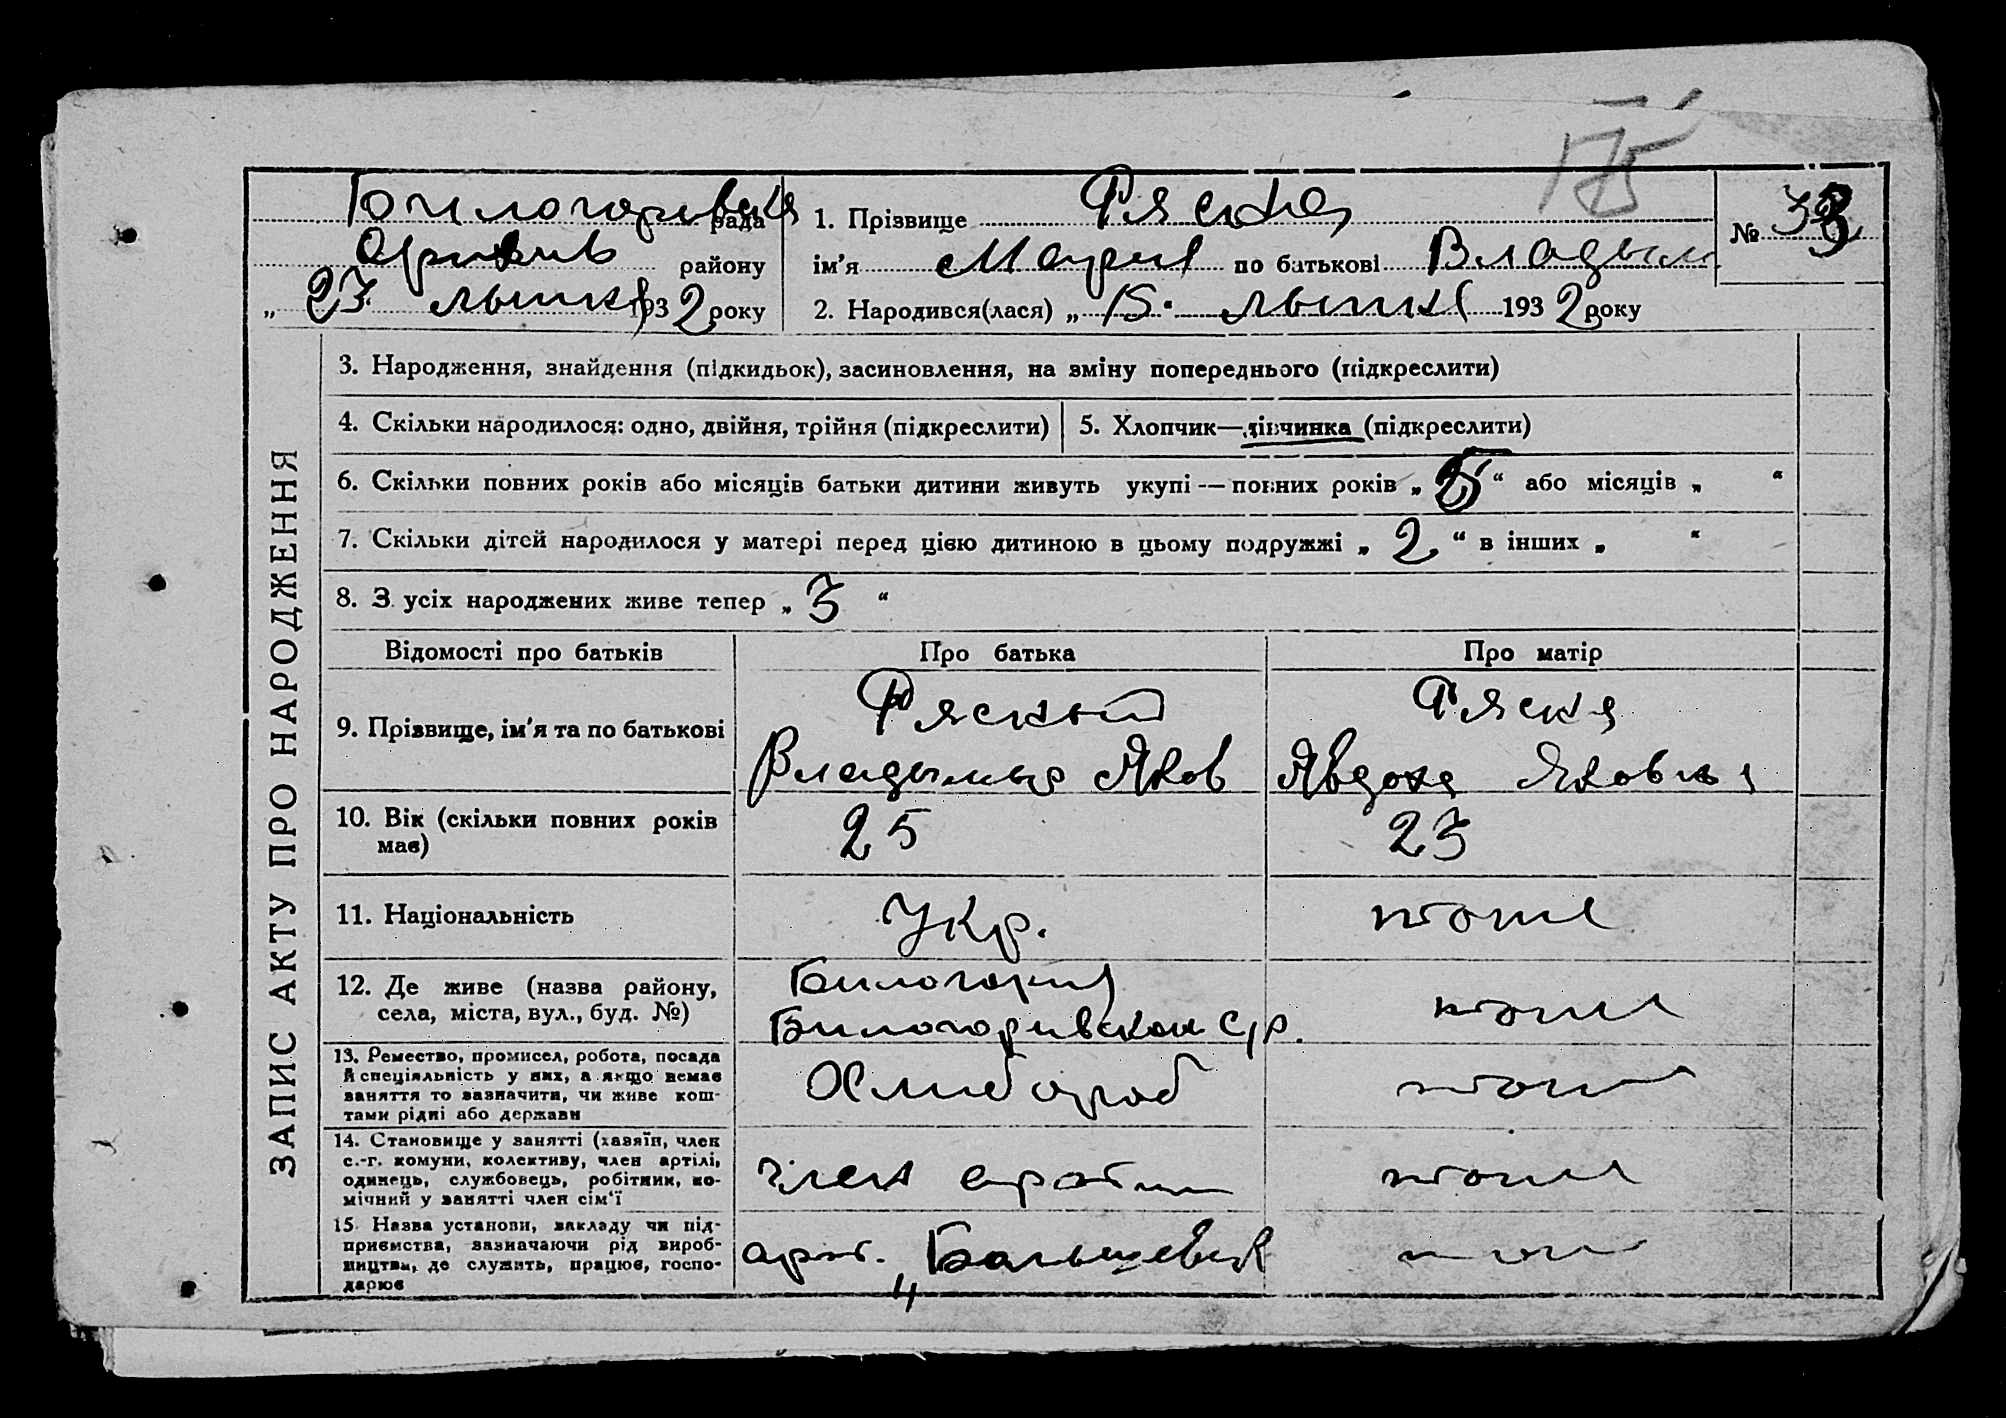 175
Билогоривска рада
Орихив району
„ 23 лыпня 1932 року
1. Прізвище Ряска
№ 33
ім'я Мария по батькові Владым
2. Народився(лася) „ 15. лыпня 1932 року
ЗАПИС АКТУ ПРО НАРОДЖЕННЯ
3. Народження, знайдення (підкидьок), засиновлення, на зміну попереднього (підкреслити)
4. Скільки народилося: одно, двійня, трійня (підкреслити)
5. Хлопчик—дівчинка (підкреслити)
6. Скільки повних років або місяців батьки дитини живуть укупі — повних років „ 5 “ або місяців „ “
7. Скільки дітей народилося у матері перед цією дитиною в цьому подружжі „ 2 “ в інших „ “
8. З усіх народжених живе тепер „ 3 “
Відомості про батьків
Про батька
Про матір
9. Прізвище, ім'я та по батькові
Ряскый
Владымыр Яков
Ряска
Явдоха Яковна
10. Вік (скільки повних років
має)
25
23
11. Національність
Укр.
тоже
12. Де живе (назва району,
села, міста, вул., буд. №)
Билогория
Билогоривскои с/р.
тоже
13. Ремество, промисел, робота, посада
й спеціяльність у них, а якщо немає
заняття то зазначити, чи живе кош-
тами рідні або держави
Хлибороб
тоже
14. Становище у занятті (хазяїн, член
с.-г. комуни, колективу, член артілі,
одинець, службовець, робітник, по-
мічний у занятті член сім'ї
член артили
тоже
15. Назва установи, закладу чи під-
приємства, зазначаючи рід вироб-
ництва, де служить, працює, госпо-
дарює
арт. Большевик
тоже
4